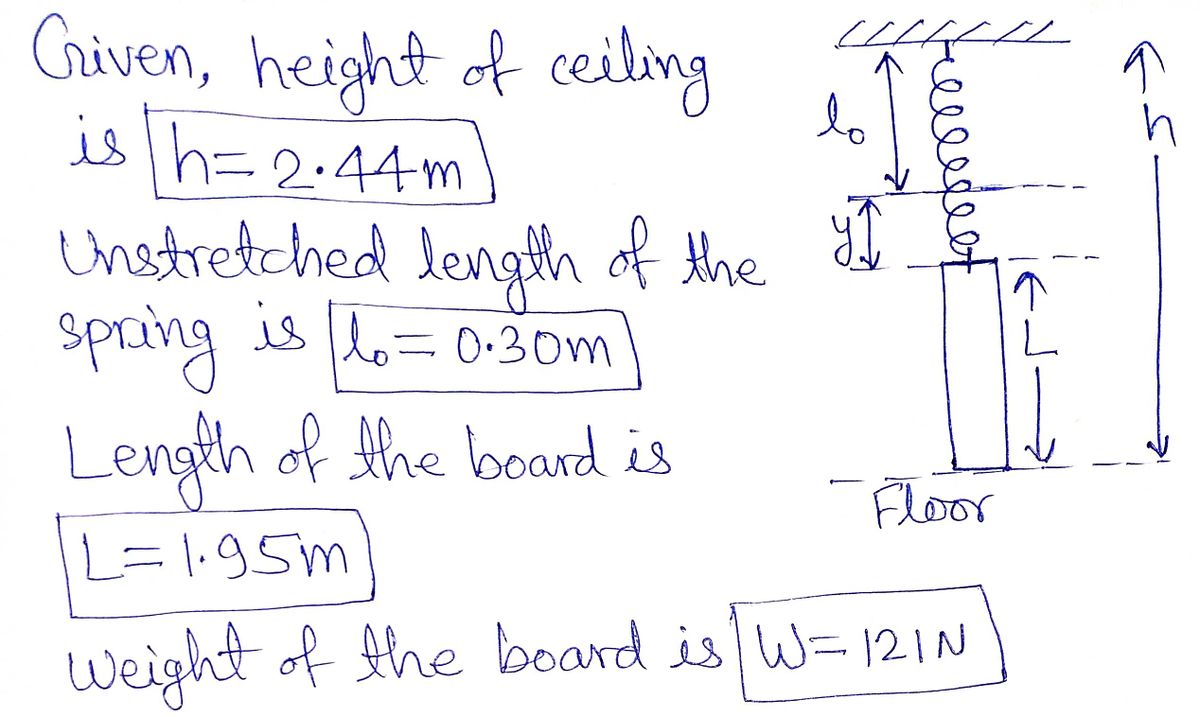 Given, height of ceiling
is h = 2.44m
Unstretched length of the
spring is l₀ = 0.30m
Length of the board is
L = 1.95m
Weight of the board is W = 121N
l₀
h
y
L
Floor